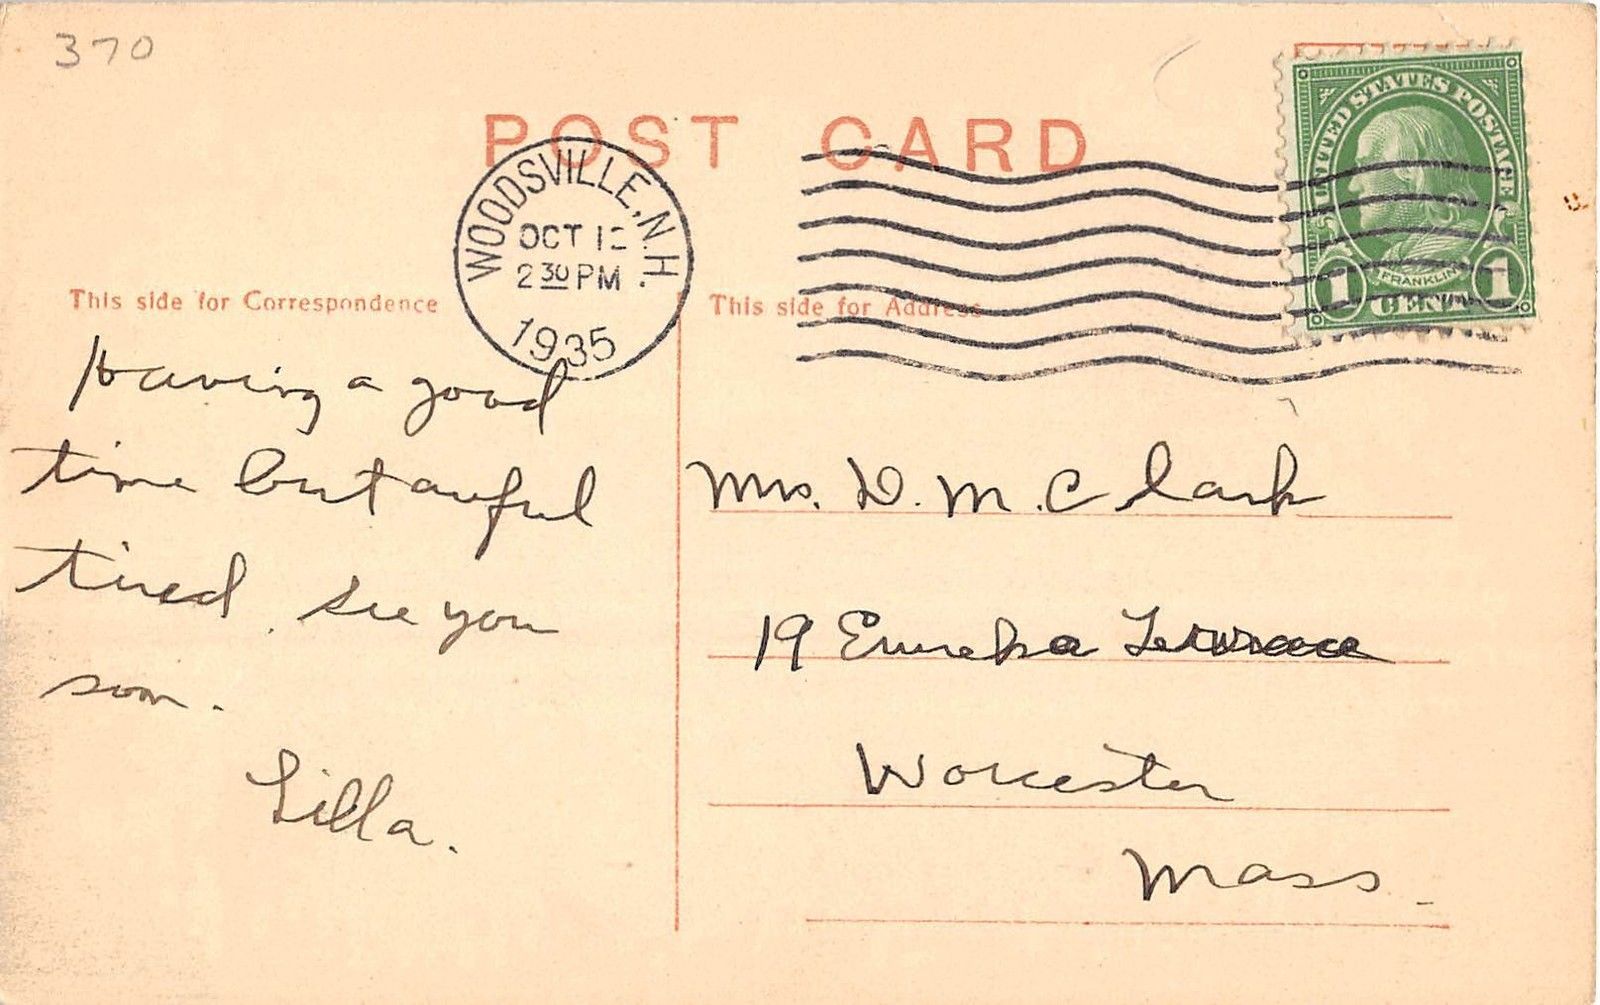 370
POST CARD
WOODSVILLE, N.H.
OCT
2 30 PM
1935
UNITED STATES POSTAGE
FRANKLIN
1 CENT 1
This side for Correspondence
This side for Address
Having a good
time but awful
tired. See you
soon.
Lilla.
Mrs. D. M. Clark
19 Eureka Terrace
Worcester
Mass.